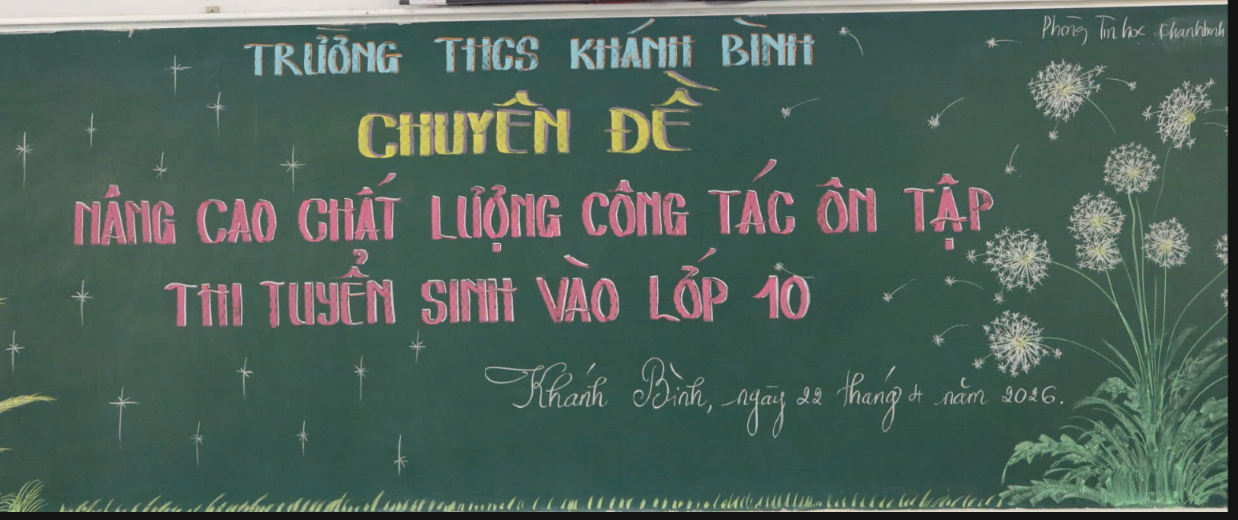 Phòng Tin học Khanhbinh
TRƯỜNG THCS KHÁNH BÌNH
CHUYÊN ĐỀ
NÂNG CAO CHẤT LƯỢNG CÔNG TÁC ÔN TẬP
THI TUYỂN SINH VÀO LỚP 10
Khánh Bình, ngày 22 tháng 4 năm 2026.